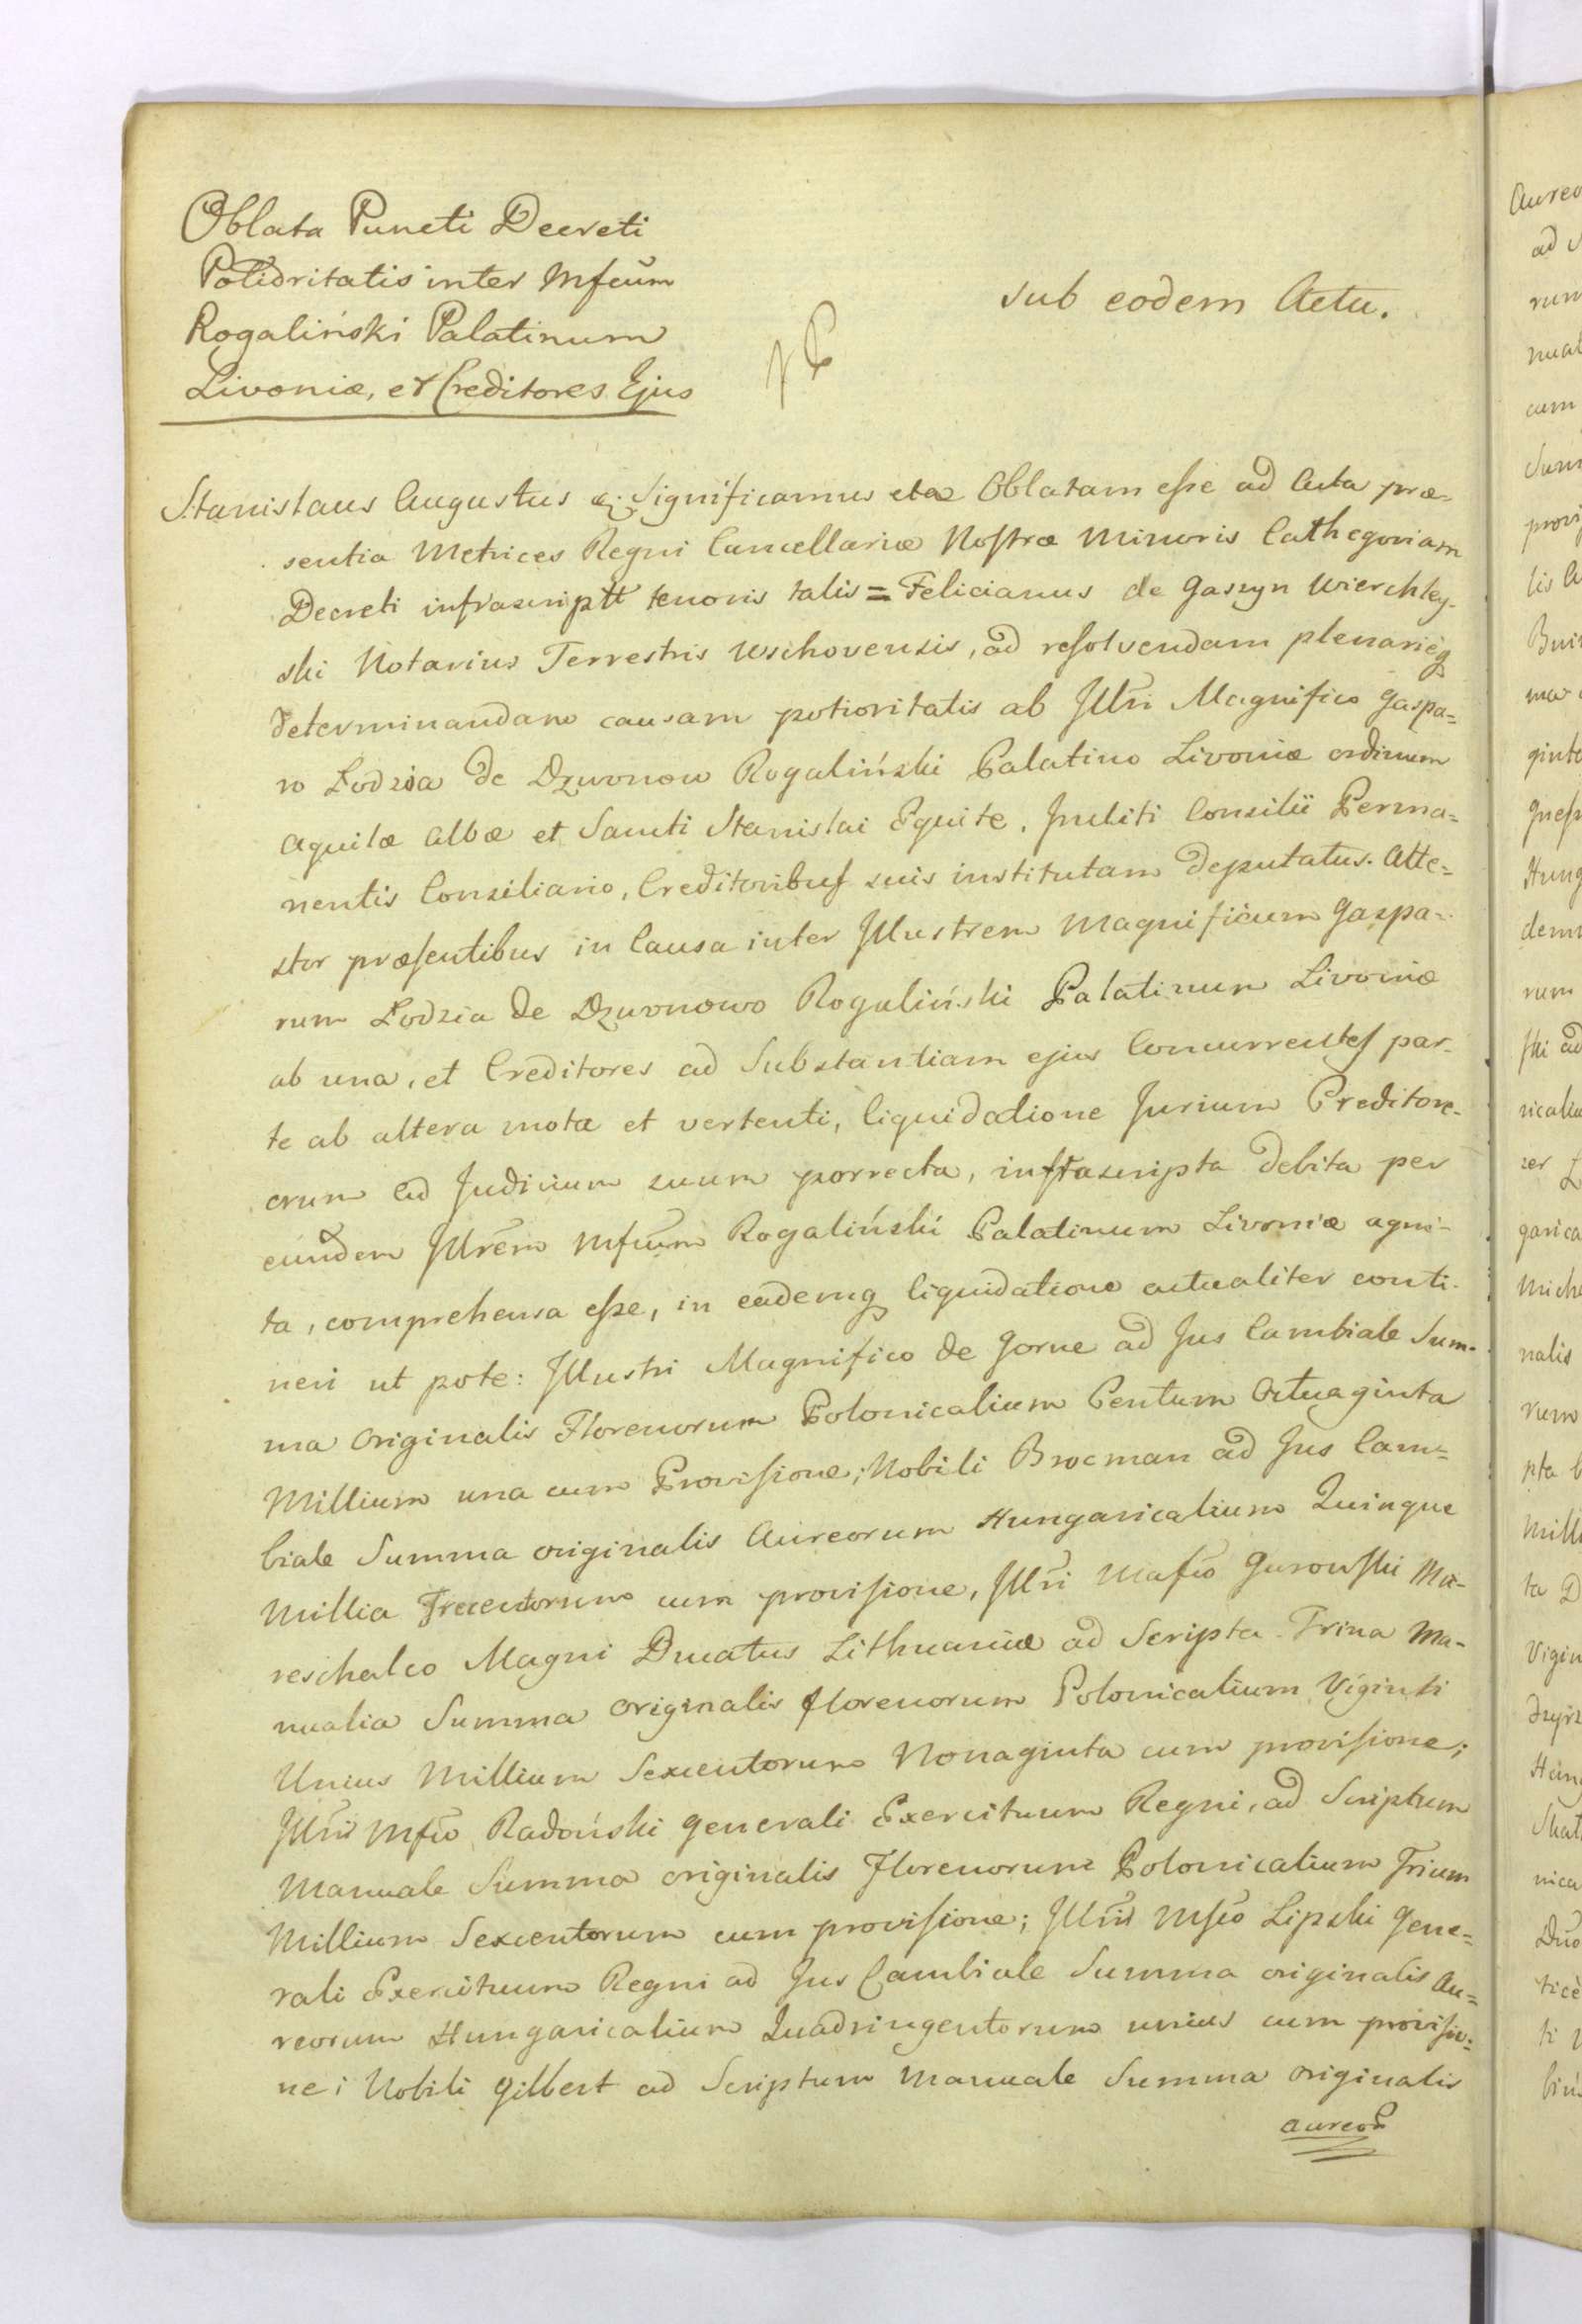 Oblata Puncti Decreti
Potioritatis inter Mfcum
Rogaliński Palatinum
Livoniæ, et Creditores Ejus
sub eodem Actu.
Stanislaus Augustus &. Significamus etc Oblatam esse ad Acta præ-
sentia Metrices Regni Cancellariæ Nostræ Minoris Cathegoriam
Decreti infrascriptt tenoris talis = Felicianus de Gaszyn Wierchley-
ski Notarius Terrestris Wschovensis, ad resolvendam plenarieq
determinandam causam potioritatis ab Jllri Magnifico Gaspa=
ro Łodzia de Dzwonow Rogaliński Palatino Livoniæ ordinum
Aquilæ Albæ et Sancti Stanislai Equite, Jncliti Consilii Perma=
nentis Consiliario, Creditoribus suis institutam deputatus. Atte=
stor præsentibus in Causa inter Jllustrem Magnificum Gaspa=
rum Łodzia de Dzwonowo Rogaliński Palatinum Livoniæ
ab una, et Creditores ad Substantiam ejus Concurrentes par-
te ab altera mota et vertenti, liquidatione Jurium Creditore-
orum ad Judicium suum porrecta, infrascripta debita per
eundem Jllrem Mfcum Rogaliński Palatinum Livoniæ agni-
ta, comprehensa esse, in eademq liquidatione actualiter conti-
neri ut pote: Jllustri Magnifico de Gorne ad Jus Cambiale Sum-
ma Originalis Florenorum Polonicalium Centum Octuaginta
Millium una cum Provisione; Nobili Brocman ad Jus Cam=
biale Summa originalis Aureorum Hungaricalium Quinque
Millia Trecentorum cum provisione, Jllri Mafco Gurowski Ma-
reschalco Magni Ducatus Lithuaniæ ad Scripta Trina Ma-
nualia Summa Originalis florenorum Polonicalium Viginti
Unius Millium Sexcentorum Nonaginta cum provisione;
Jllri Mfco Radoński Generali Exercituum Regni, ad Scriptum
Manuale Summa originalis Florenorum Polonicalium Trium
Millium Sexcentorum cum provisione; Jllri Mfco Lipski Gene=
rali Exercituum Regni ad Jus Cambiale Summa originalis Au=
reorum Hungaricalium Quadringentorum unius cum provisio=
ne; Nobili Gilbert ad Scriptum Manuale Summa Originalis
aureor